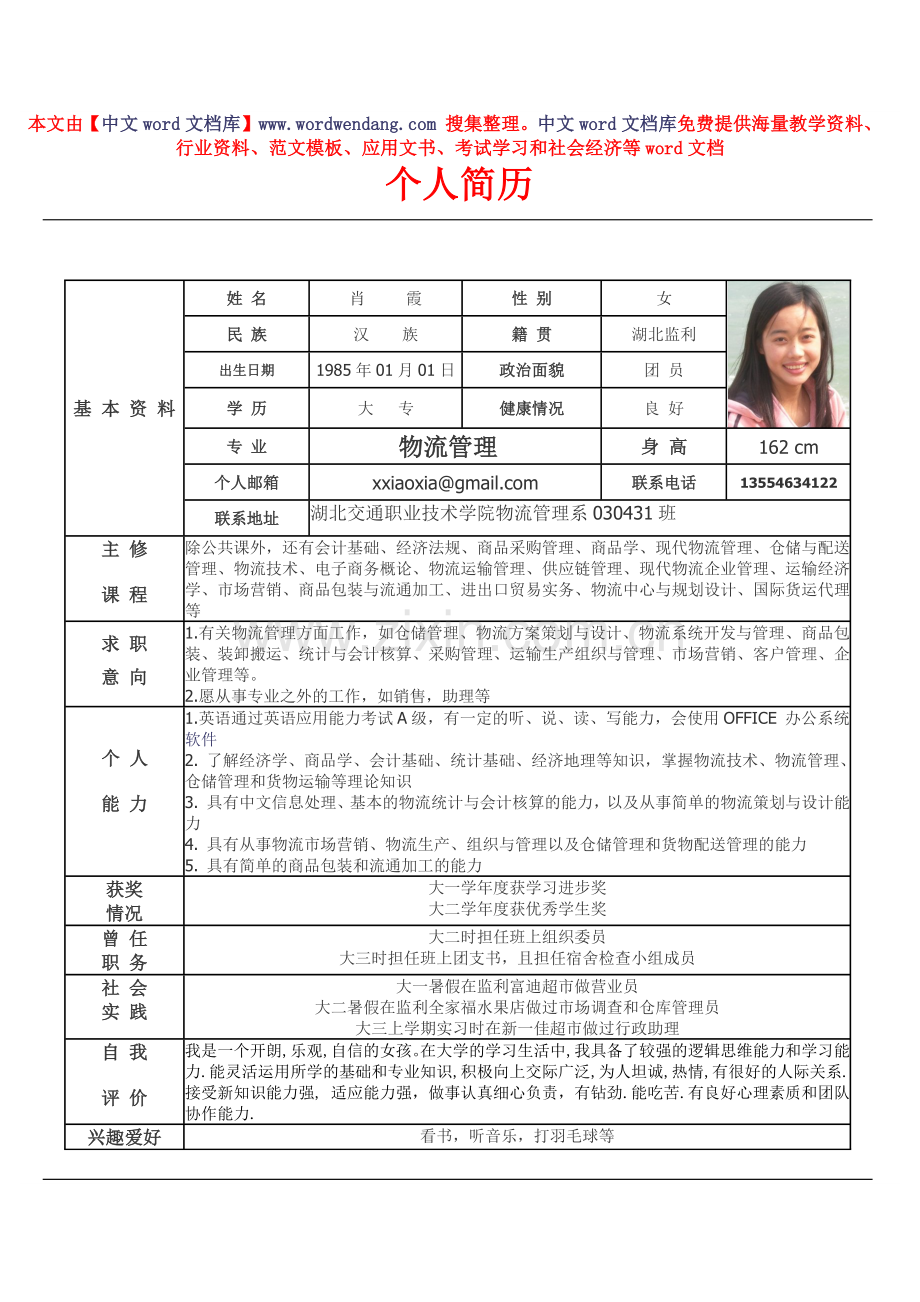 本文由【中文word文档库】www.wordwendang.com 搜集整理。中文word文档库免费提供海量教学资料、
行业资料、范文模板、应用文书、考试学习和社会经济等word文档
个人简历
基 本 资 料
姓 名 肖 霞 性 别 女
民 族 汉 族 籍 贯 湖北监利
出生日期 1985年01月01日 政治面貌 团 员
学 历 大 专 健康情况 良 好
专 业 物流管理 身 高 162 cm
个人邮箱 xxiaoxia@gmail.com 联系电话 13554634122
联系地址 湖北交通职业技术学院物流管理系030431班
主 修
课 程
除公共课外，还有会计基础、经济法规、商品采购管理、商品学、现代物流管理、仓储与配送
管理、物流技术、电子商务概论、物流运输管理、供应链管理、现代物流企业管理、运输经济
学、市场营销、商品包装与流通加工、进出口贸易实务、物流中心与规划设计、国际货运代理
等
求 职
意 向
1.有关物流管理方面工作，如仓储管理、物流方案策划与设计、物流系统开发与管理、商品包
装、装卸搬运、统计与会计核算、采购管理、运输生产组织与管理、市场营销、客户管理、企
业管理等。
2.愿从事专业之外的工作，如销售，助理等
个 人
能 力
1.英语通过英语应用能力考试A级，有一定的听、说、读、写能力，会使用OFFICE 办公系统
软件
2. 了解经济学、商品学、会计基础、统计基础、经济地理等知识，掌握物流技术、物流管理、
仓储管理和货物运输等理论知识
3. 具有中文信息处理、基本的物流统计与会计核算的能力，以及从事简单的物流策划与设计能
力
4. 具有从事物流市场营销、物流生产、组织与管理以及仓储管理和货物配送管理的能力
5. 具有简单的商品包装和流通加工的能力
www.zixin.com.cn
获奖
情况
大一学年度获学习进步奖
大二学年度获优秀学生奖
曾 任
职 务
大二时担任班上组织委员
大三时担任班上团支书，且担任宿舍检查小组成员
社 会
实 践
大一暑假在监利富迪超市做营业员
大二暑假在监利全家福水果店做过市场调查和仓库管理员
大三上学期实习时在新一佳超市做过行政助理
自 我
评 价
我是一个开朗,乐观,自信的女孩。在大学的学习生活中,我具备了较强的逻辑思维能力和学习能
力.能灵活运用所学的基础和专业知识,积极向上交际广泛,为人坦诚,热情,有很好的人际关系.
接受新知识能力强, 适应能力强，做事认真细心负责，有钻劲.能吃苦.有良好心理素质和团队
协作能力.
兴趣爱好 看书，听音乐，打羽毛球等